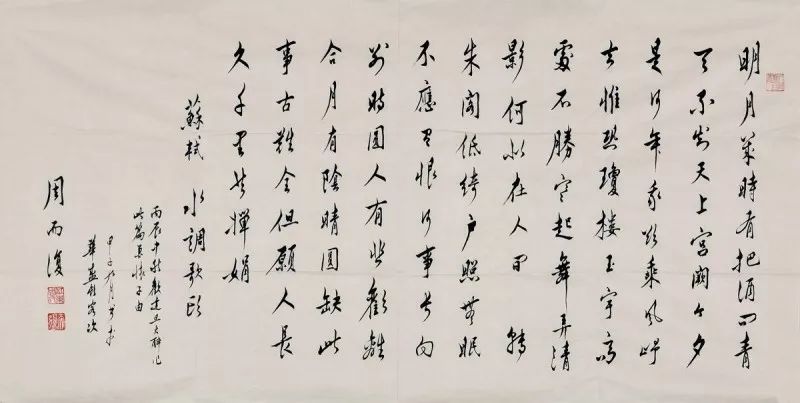 明月幾時有把酒问青
天不知天上宫闕今夕
是何年我欲乘风歸
去惟恐瓊楼玉宇高
處不勝寒起舞弄清
影何似在人间 轉
朱阁低绮户照無眠
不應有恨何事长向
别時圆人有悲歡離
合月有陰晴圆缺此
事古難全但願人長
久千里共嬋娟
蘇軾 水調歌頭
丙辰中秋歡達旦大醉作
此篇兼懷子由
甲子九月书
華盛顿客次
周而復